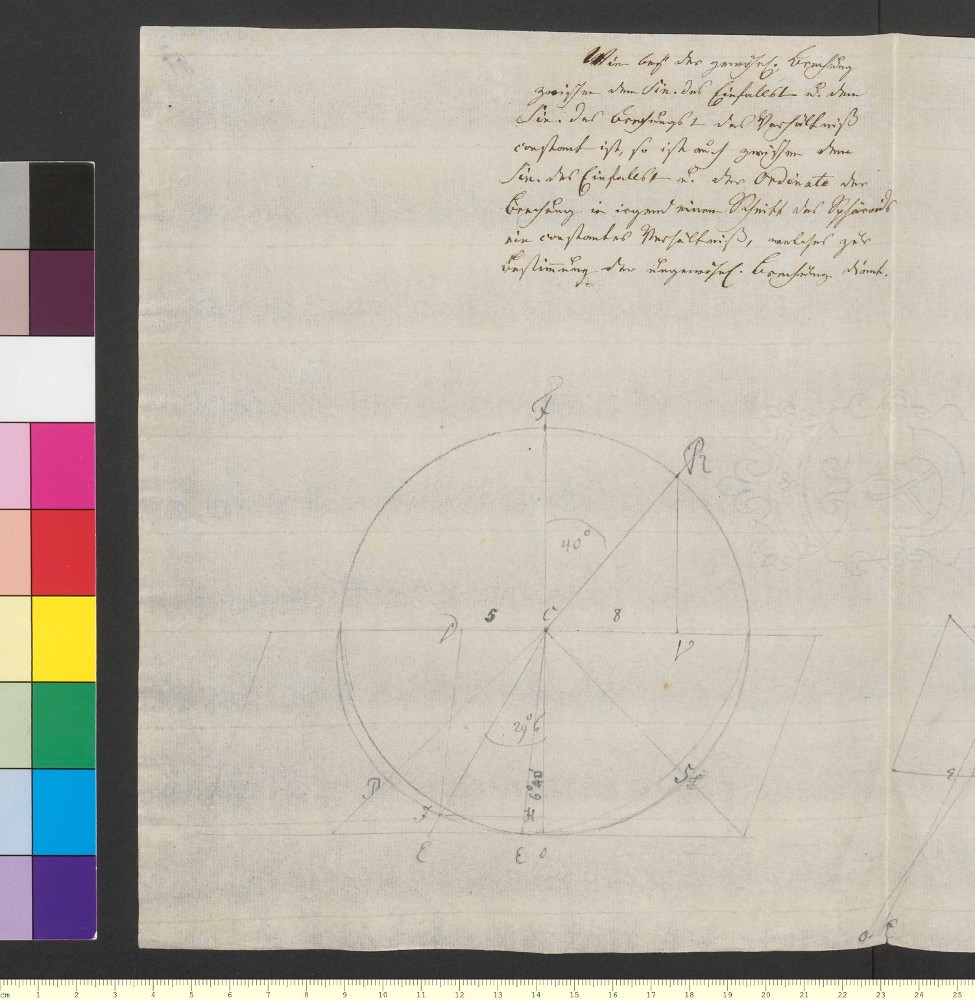 Wie bey der gewöhnl. Brechung
zwischen dem Sin. des Einfalls u. dem
Sin. des Brechungs das Verhältniß
constant ist, so ist auch zwischen dem
Sin. des Einfalls u. der Ordinate der
Brechung in irgend einem Schnitt des Sphäroids
ein constantes Verhältniß, welches zur
Bestimmung der ungewöhnl. Brechung dient.
R
40°
D 5 C 8
V
29° 6
P S
6° 40
F H
E E O